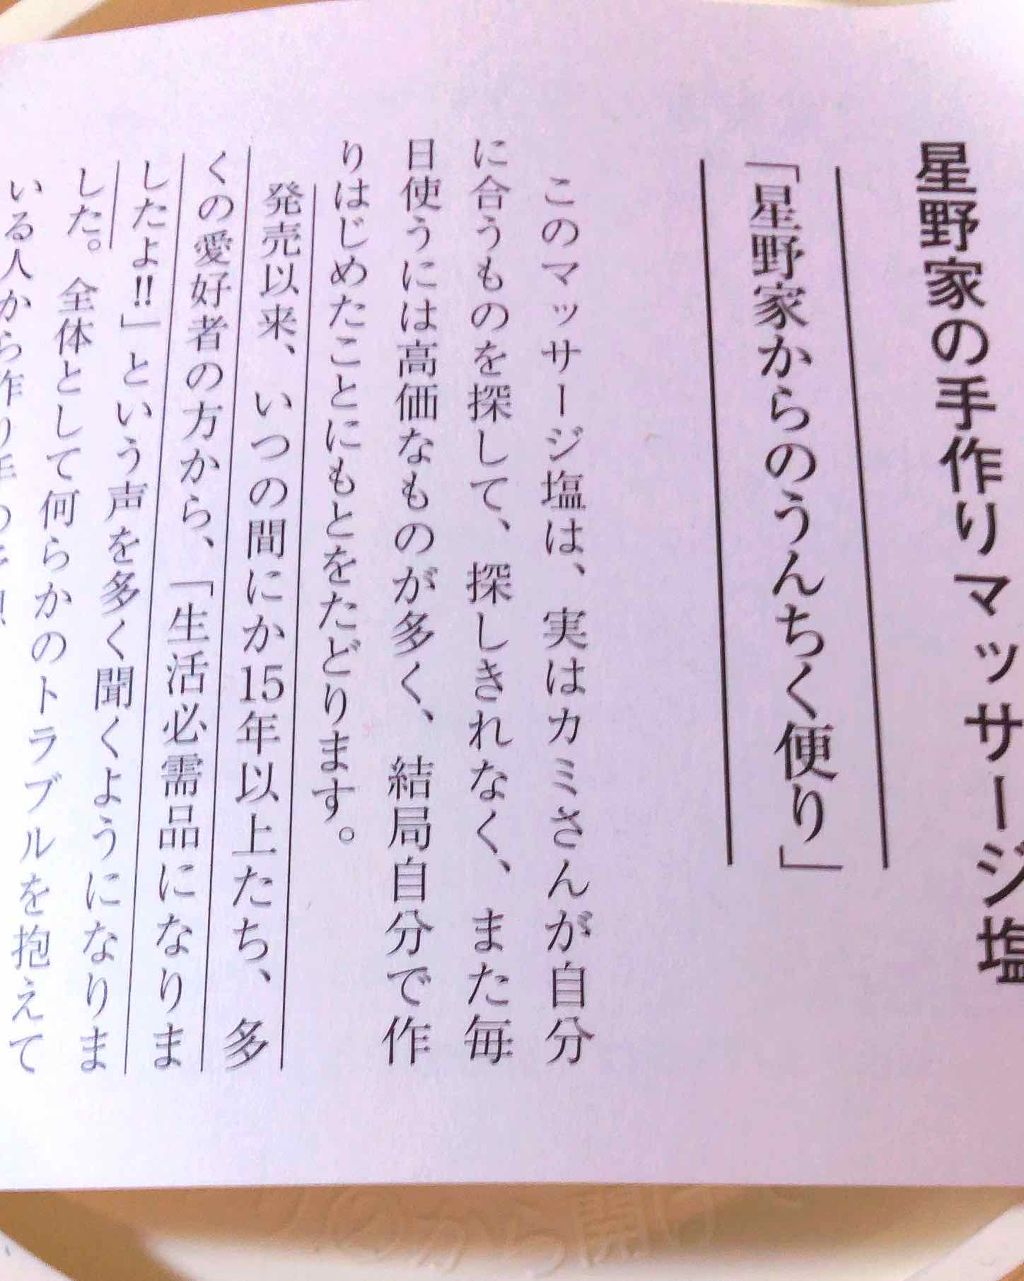 星野家の手作りマッサージ塩
「星野家からのうんちく便り」
このマッサージ塩は、実はカミさんが自分
に合うものを探して、探しきれなく、また毎
日使うには高価なものが多く、結局自分で作
りはじめたことにもとをたどります。
発売以来、いつの間にか15年以上たち、多
くの愛好者の方から、「生活必需品になりま
したよ!!」という声を多く聞くようになりま
した。全体として何らかのトラブルを抱えて
いる人から作り手の
から開け